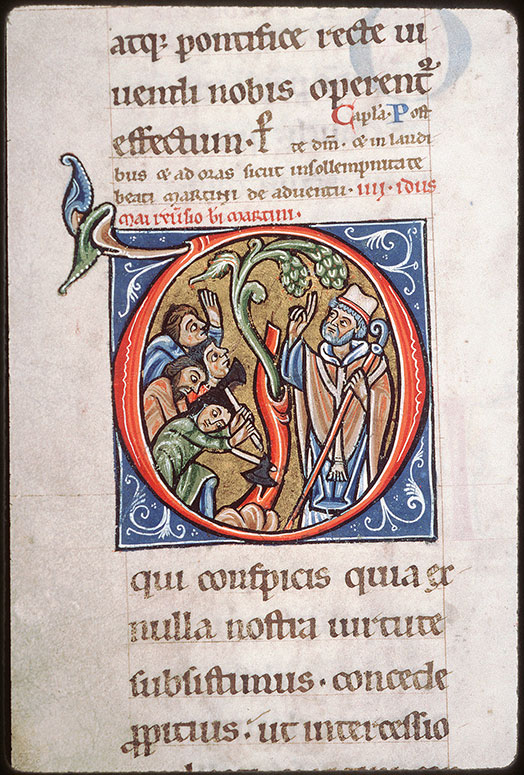 atq; pontifice recte vi
uendi nobis operent᷑
effectum. P Capl'a. Post
te dm̄. ce in laudi
bus ce ad oras sicut in sollempnitate
beati martini de adventu. IIII. idus
Mai reūsio bi martini.
O
qui conspicis quia ex
nulla nostra uirtute
subsistimus. concede
ꝓpitius. ut intercessio